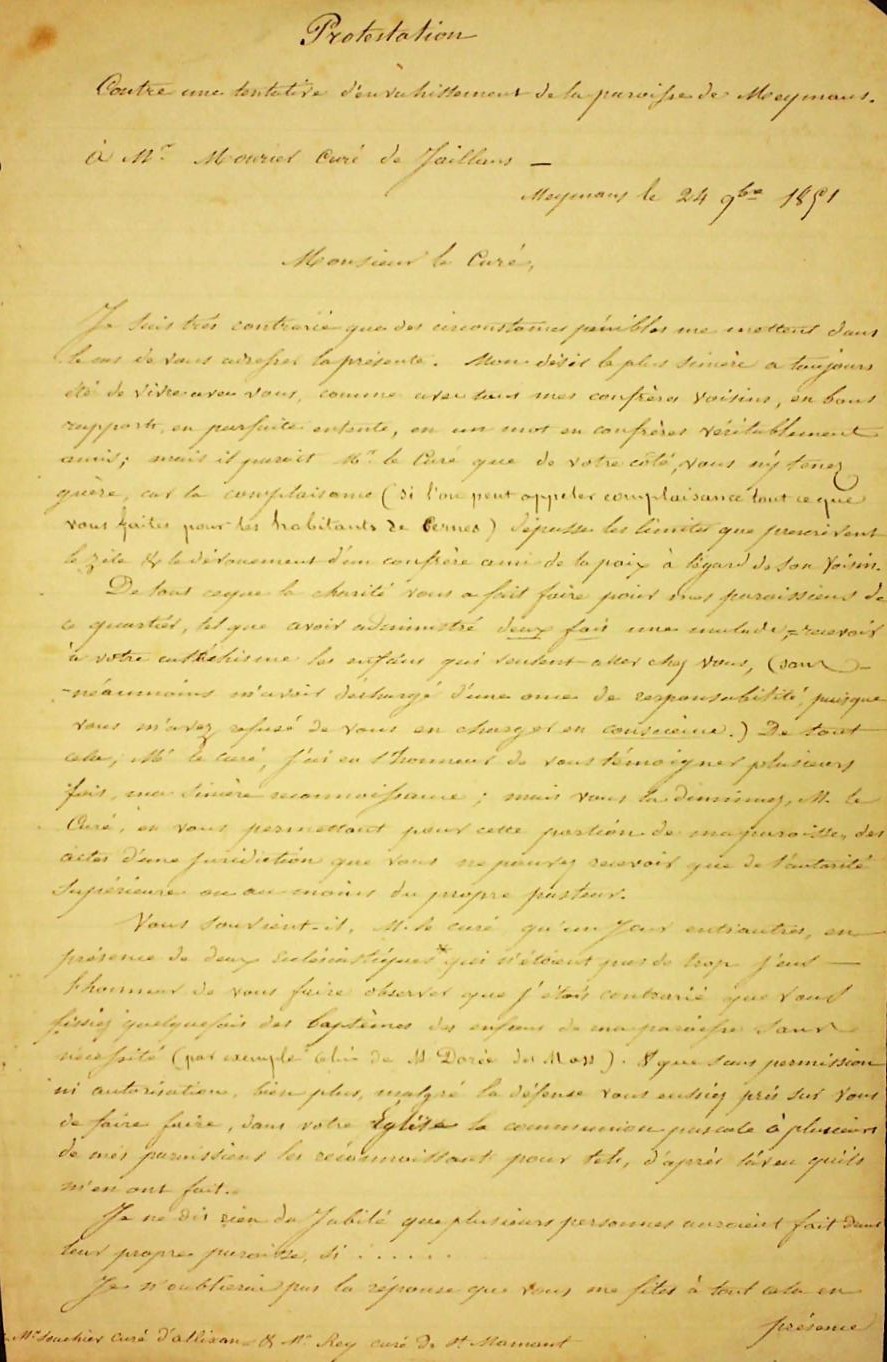 Protestation
Contre une tentative d'envahissement de la paroisse de Meymans.
à Mr. Mourier Curé de Jaillans —
Meymans le 24 9bre 1851
Monsieur le Curé,
Je suis très contrarié que des circonstances pénibles me mettent dans
le cas de vous adresser la présente. Mon désir le plus sincère a toujours
été de vivre avec vous, comme avec tous mes confrères voisins, en bons
rapports, en parfaite entente, en un mot en confrères véritablement
amis; mais il paroit Mr. le Curé que de votre côté, vous n'y tenez
guère, car la complaisance (si l'on peut appeler complaisance tout ce que
vous faites pour les habitants de Bernes) dépasse les limites que prescrivent
le zèle & le dévouement d'un confrère ami de la paix à l'égard de son voisin.
De tout ce que la charité vous a fait faire pour mes paroissiens de
ce quartier, tel que avoir administré deux fois une malade, recevoir
à votre cathéchisme les enfans qui veulent aller chez vous, (sans
néanmoins m'avoir déchargé d'une once de responsabilité, puisque
vous m'avez refusé de vous en charger en conscience.) De tout
cela, Mr le curé, j'ai eu l'honneur de vous témoigner plusieurs
fois, ma sincère reconnoissance; mais vous la diminuez, M. le
Curé, en vous permettant pour cette portion de ma paroisse, des
actes d'une juridiction que vous ne pouvez recevoir que de l'autorité
Supérieure ou au moins du propre pasteur.
Vous souvient-il, M. le curé qu'un jour entr'autres, en
présence de deux Ecclésiastiques * qui n'étoient pas de trop j'eus
l'honneur de vous faire observer que j'étois contrarié que vous
fissiez quelquefois des baptêmes des enfans de ma paroisse sans
nécessité (par exemple celui de M Dorée du Mass). & que sans permission
ni autorisation, bien plus, malgré la défense vous eussiez pris sur vous
de faire faire, dans votre Eglise la communion pascale à plusieurs
de mes paroissiens les reconnoissant pour tels, d'après l'aveu qu'ils
m'en ont fait.
Je ne dis rien du Jubilé que plusieurs personnes auroient fait dans
leur propre paroisse, si . . . . . .
Je n'oublierai pas la réponse que vous me fites à tout cela en
présence
Mr Souchier curé d'allixan & Mr Rey curé de St Mamant